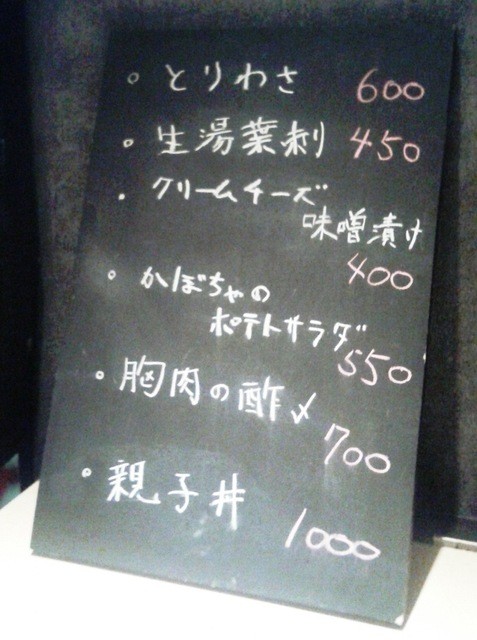 。とりわさ 600
。生湯葉刺 450
・クリームチーズ
味噌漬け
400
。かぼちゃの
ポテトサラダ
550
。胸肉の酢〆
700
。親子丼
1000